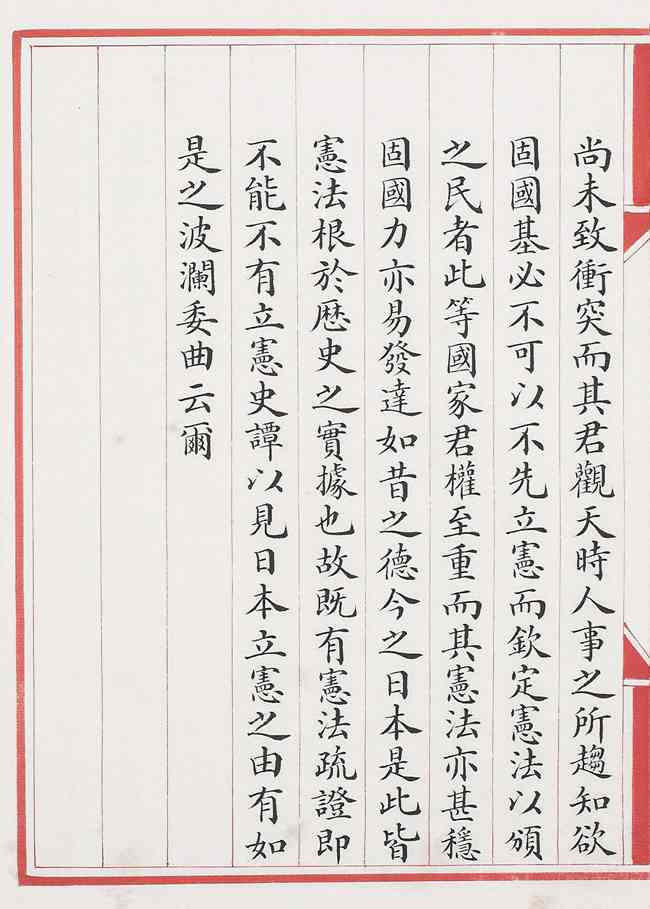 尚未致衝突而其君觀天時人事之所趨知欲
固國基必不可以不先立憲而欽定憲法以頒
之民者此等國家君權至重而其憲法亦甚穩
固國力亦易發達如昔之德今之日本是此皆
憲法根於歷史之實據也故既有憲法疏證即
不能不有立憲史譚以見日本立憲之由有如
是之波瀾委曲云爾